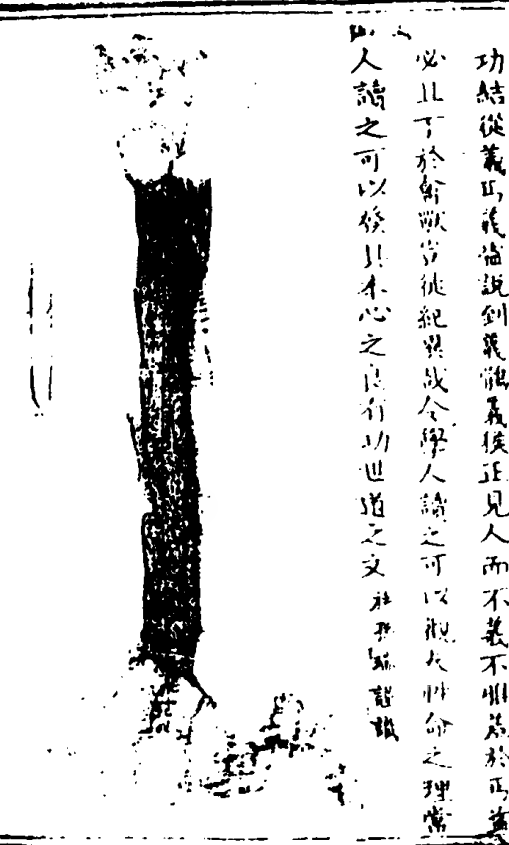 功結從義馬義猫說到義鶴義猴正見人而不義不惟羞於馬猫
必且下於禽獸豈徒紀異哉令學人讀之可以觀天性命之理常
人讀之可以發其本心之良有功世道之文 社